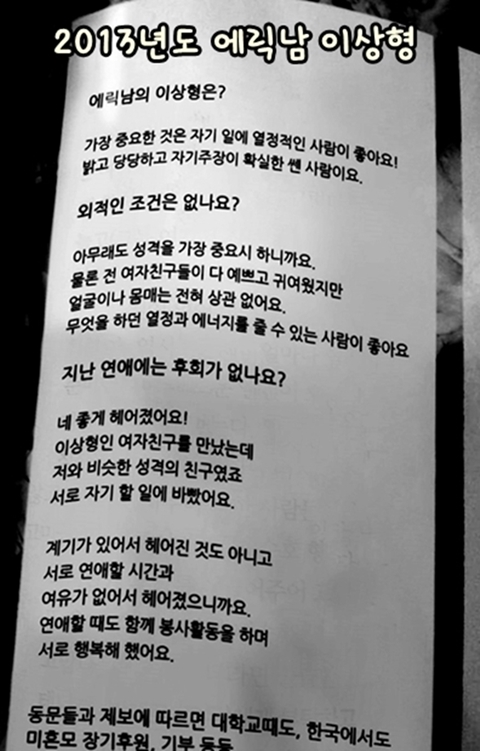 2013년도 에릭남 이상형
에릭남의 이상형은?
가장 중요한 것은 자기 일에 열정적인 사람이 좋아요!
밝고 당당하고 자기주장이 확실한 쎈 사람이요.
외적인 조건은 없나요?
아무래도 성격을 가장 중요시 하니까요.
물론 전 여자친구들이 다 예쁘고 귀여웠지만
얼굴이나 몸매는 전혀 상관 없어요.
무엇을 하던 열정과 에너지를 줄 수 있는 사람이 좋아요
지난 연애에는 후회가 없나요?
네 좋게 헤어졌어요!
이상형인 여자친구를 만났는데
저와 비슷한 성격의 친구였죠
서로 자기 할 일에 바빴어요.
계기가 있어서 헤어진 것도 아니고
서로 연애할 시간과
여유가 없어서 헤어졌으니까요.
연애할 때도 함께 봉사활동을 하며
서로 행복해 했어요.
동문들과 제보에 따르면 대학교때도, 한국에서도
미혼모 장기후원, 기부 등등